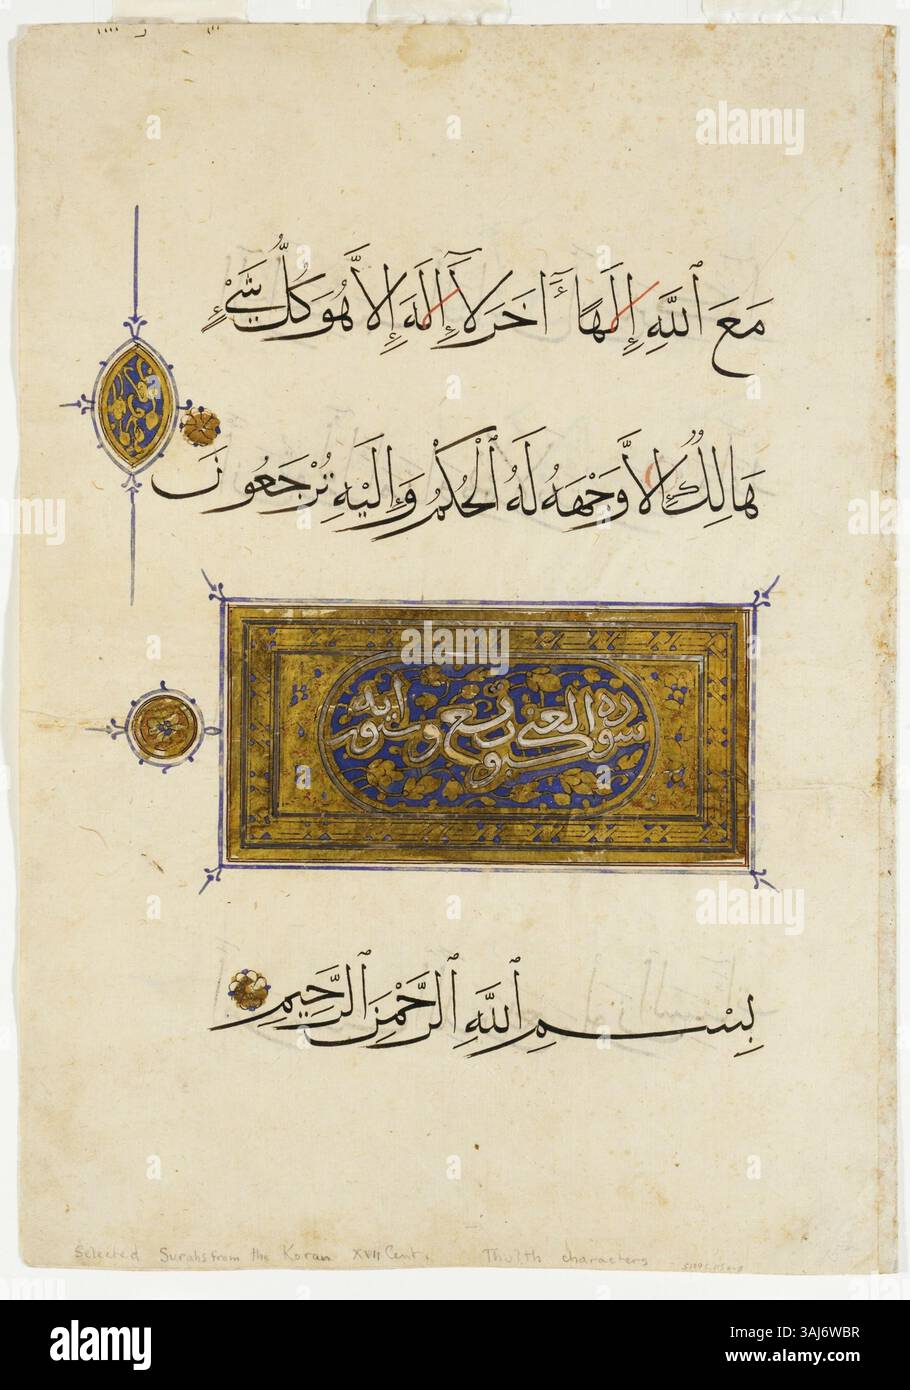 مَعَ ٱللَّهِ إِلَٰهًا ءَاخَرَ لَآ إِلَٰهَ إِلَّا هُوَ كُلُّ شَيْءٍ
هَالِكٌ إِلَّا وَجْهَهُ لَهُ ٱلْحُكْمُ وَإِلَيْهِ تُرْجَعُونَ
سورة العنكبوت
بِسْمِ ٱللَّهِ ٱلرَّحْمَٰنِ ٱلرَّحِيمِ
Selected Surahs from the Koran XVII Cent. Thulth characters
alamy
Image ID: 3AJ6WBR
www.alamy.com